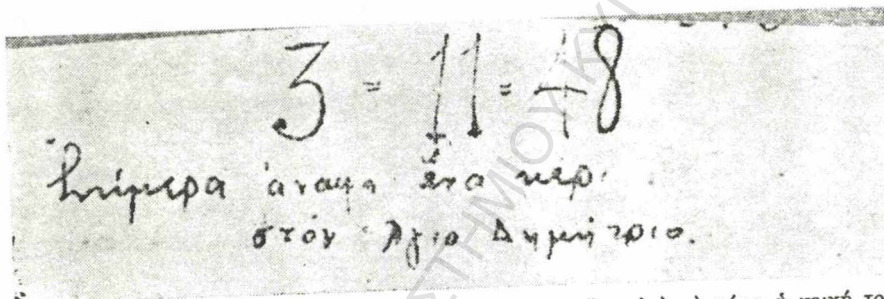 3 = 11 = 48
Σήμερα ἀναψα ἕνα κερί
στόν Ἅγιο Δημήτριο.